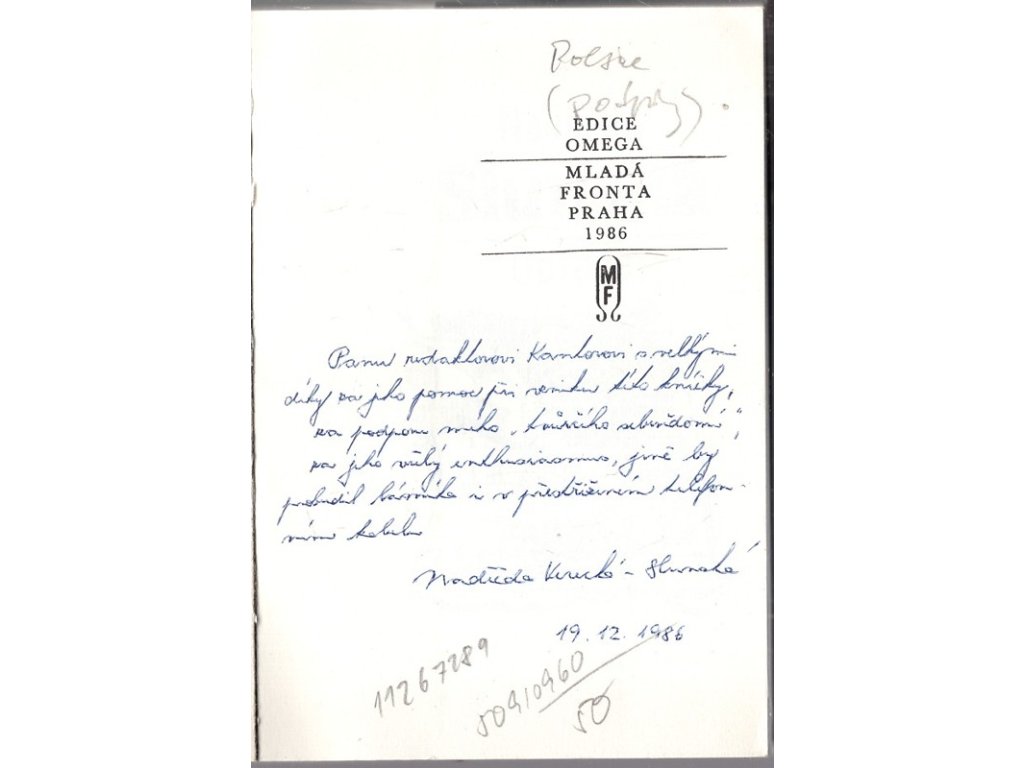 (Podpis).
EDICE
OMEGA
MLADÁ
FRONTA
PRAHA
1986
MF
Panu redaktorovi Kantorovi s velkými
díky za jeho pomoc při vzniku této knížky,
za podporu mého „tvůrčího sebevědomí“,
za jeho vřelý enthusiasmus, jímž by
probudil básníka i v předtřicímném telefon-
ním kabelu
Naděžda Verecká - Slunská
19. 12. 1986
11267289
50910960
50